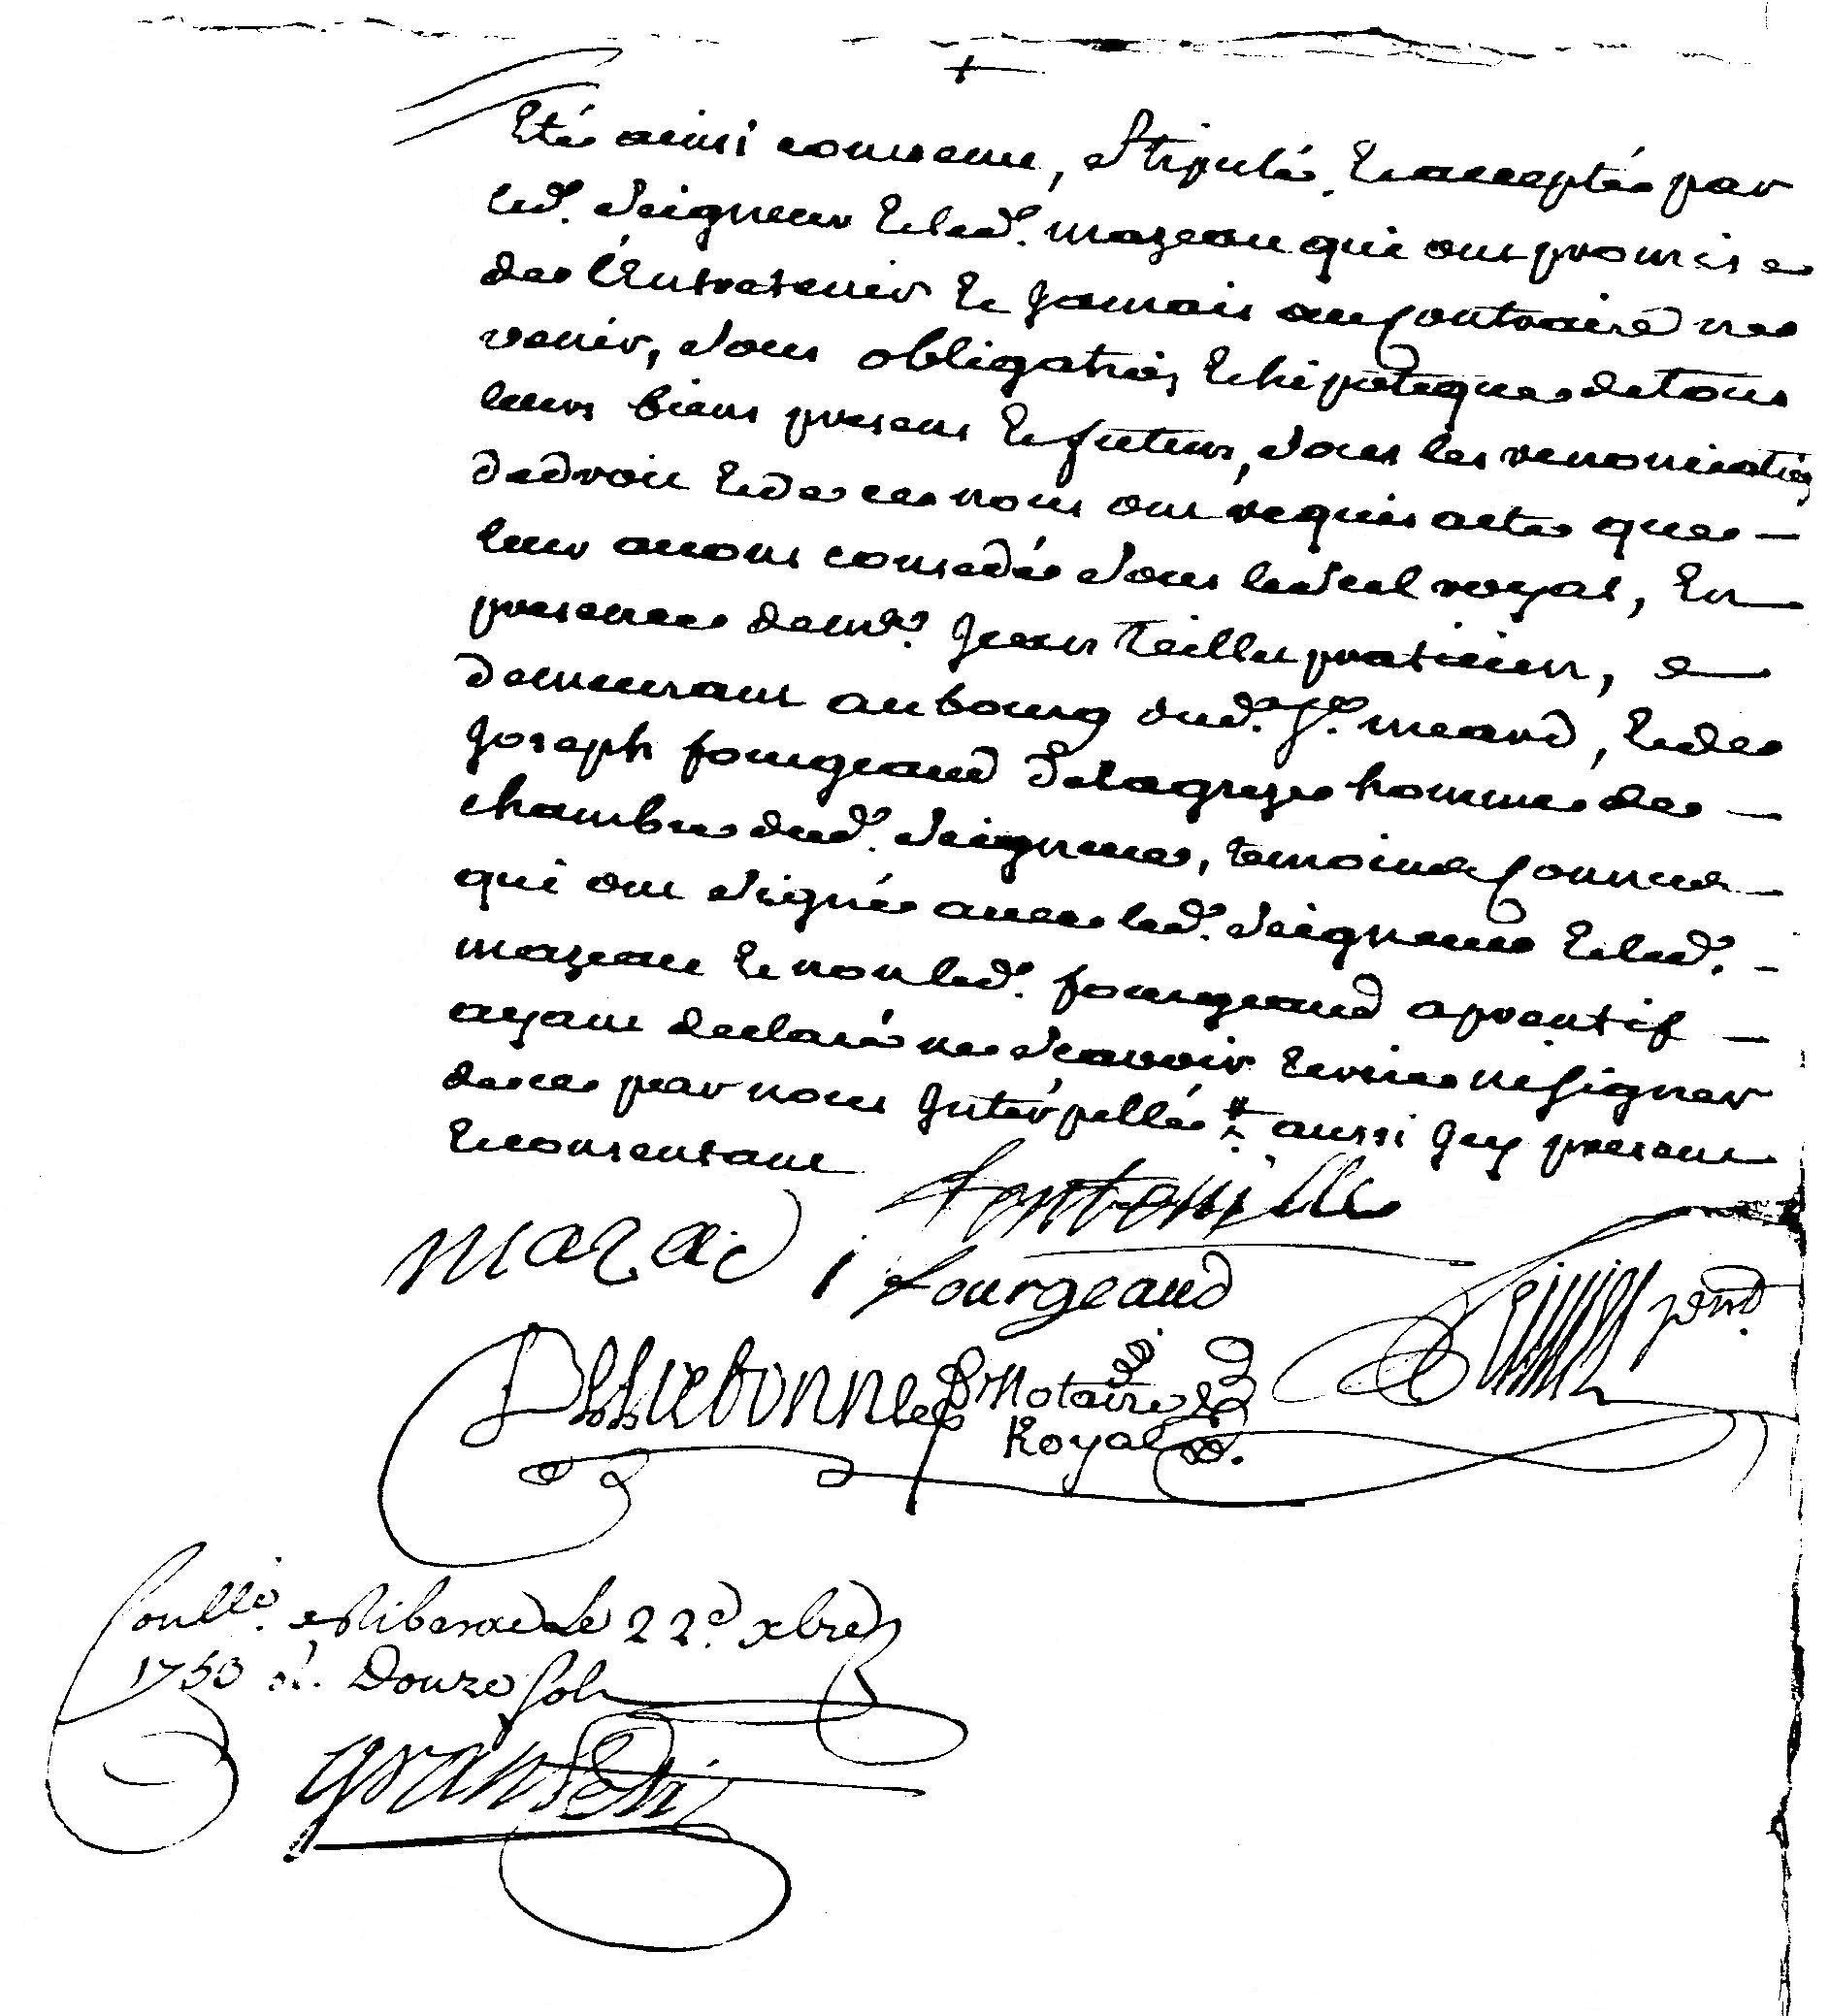 Eté ainsi convenu, Stipulé, Et accepté par
led. Seigneur Et led. mazeau qui ont promis
de l'Entretenir Et Jamais au Contraire ne
venir, Sous obligation, Et hipoteque de tous
leurs biens presens Et futeurs, Sous les renonciations
de droit Et de ce nous ont requis acte que —
leur avons concedé Sous le Scel royal, En
presence de me. Jean Teillet praticien,
demeurant au bourg dud. St. meard, Et de
Joseph fourgeaud de lagreze homme de —
chambre dud. Seigneur, temoins Connus —
qui ont Signé avec led. Seigneur Et led. -
mazeau Et non led. fourgeaud aprentif —
ayant declaré ne Scavoir Ecrire ni Signer
de ce par nous Interpellé aussi Icy present
Et consentant
fontenille
fourgeaud
Notaire
Royal
Conllé. a Riberac Le 22e. xbre
1753 Douze Sols